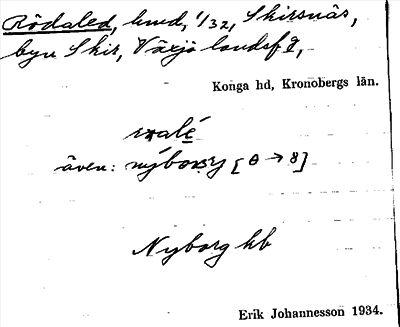 Rödaled, hmd, 1/32, Skirsnäs,
byn Skir, Växjö landsf g,
Konga hd, Kronobergs län.
även: nýborg [ɵ → 8]
Nyborg hb
Erik Johannesson 1934.